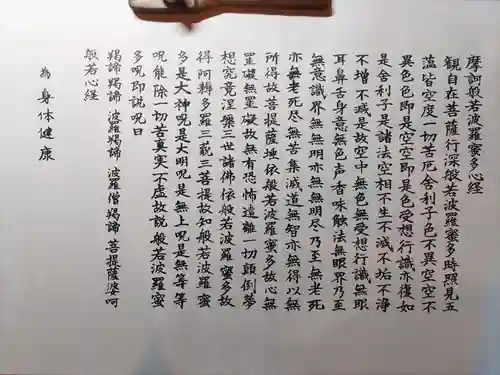 摩訶般若波羅蜜多心経
観自在菩薩行深般若波羅蜜多時照見五
蘊皆空度一切苦厄舎利子色不異空空不
異色色即是空空即是色受想行識亦復如
是舎利子是諸法空相不生不滅不垢不浄
不増不減是故空中無色無受想行識無眼
耳鼻舌身意無色声香味触法無眼界乃至
無意識界無無明亦無無明尽乃至無老死
亦無老死尽無苦集滅道無智亦無得以無
所得故菩提薩埵依般若波羅蜜多故心無
罣礙無罣礙故無有恐怖遠離一切顛倒夢
想究竟涅槃三世諸佛依般若波羅蜜多故
得阿耨多羅三藐三菩提故知般若波羅蜜
多是大神呪是大明呪是無上呪是無等等
呪能除一切苦真実不虚故説般若波羅蜜
多呪即説呪曰
羯諦羯諦 波羅羯諦 波羅僧羯諦 菩提薩婆呵
般若心経
為身体健康